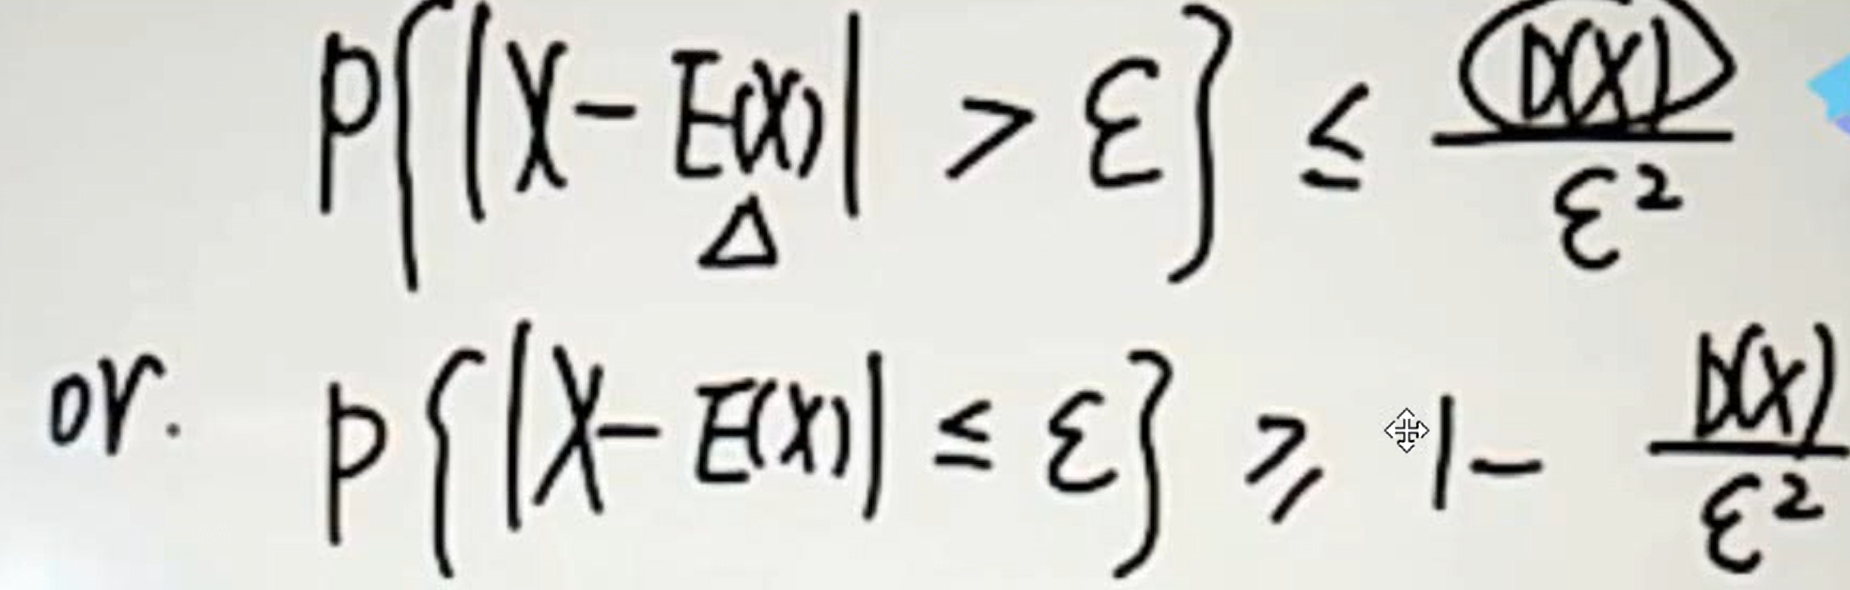 P{|X - E(X)| > ε} ≤ D(X)/ε²
△
or. P{|X - E(X)| ≤ ε} ≥ 1 - D(X)/ε²